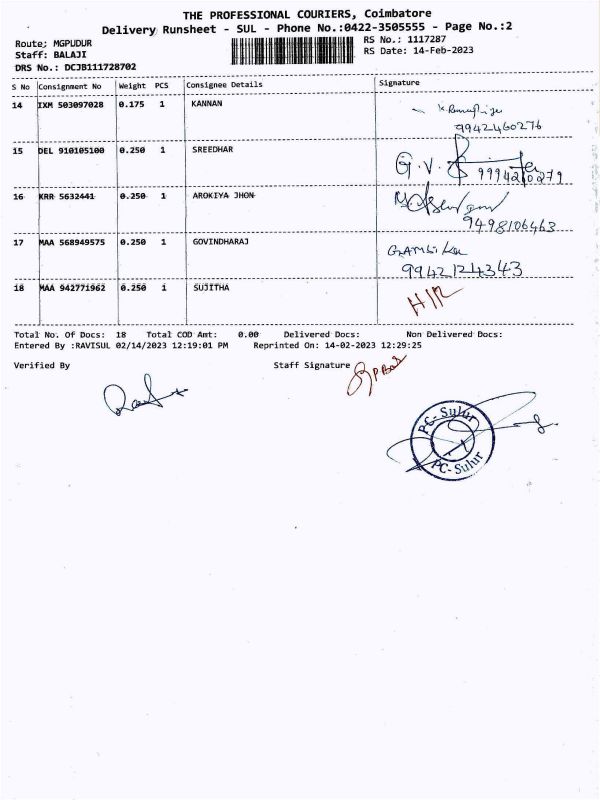 THE PROFESSIONAL COURIERS, Coimbatore
Delivery Runsheet - SUL - Phone No.:0422-3505555 - Page No.:2
Route: MGPUDUR RS No.: 1117287
Staff: BALAJI RS Date: 14-Feb-2023
DRS No.: DCJB111728702
S No Consignment No Weight PCS Consignee Details Signature
14 IXM 503097028 0.175 1 KANNAN
9942460276
15 DEL 910105100 0.250 1 SREEDHAR
G.V. 9994260279
16 KRR 5632441 0.250 1 AROKIYA JHON
9498106463
17 MAA 568949575 0.250 1 GOVINDHARAJ
9942124343
18 MAA 942771962 0.250 1 SUJITHA
Total No. Of Docs: 18 Total COD Amt: 0.00 Delivered Docs: Non Delivered Docs:
Entered By :RAVISUL 02/14/2023 12:19:01 PM Reprinted On: 14-02-2023 12:29:25
Verified By Staff Signature
PC-Sulur
PC-Sulur